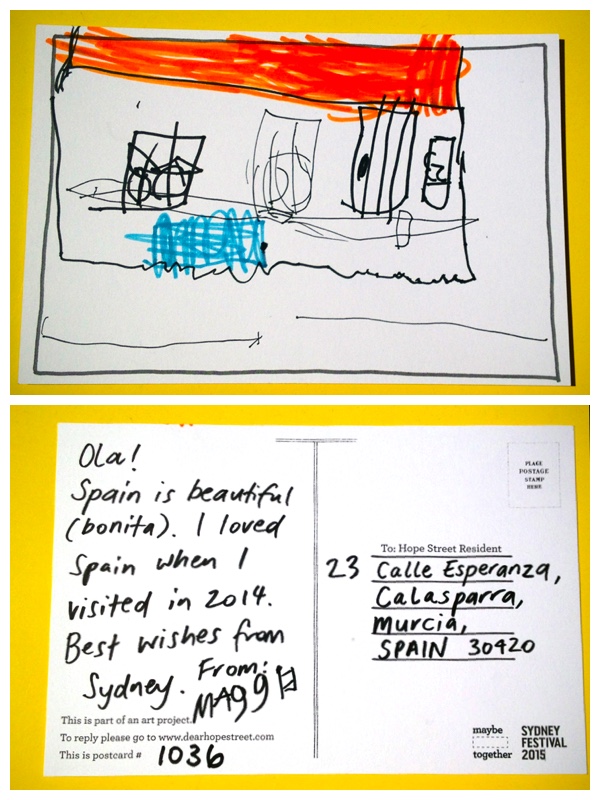 Ola!
Spain is beautiful
(bonita). I loved
Spain when I
visited in 2014.
Best wishes from
Sydney. From:
This is part of an art project.
To reply please go to www.dearhopestreet.com
This is postcard # 1036
PLACE
POSTAGE
STAMP
HERE
To: Hope Street Resident
23 Calle Esperanza,
Calasparra,
Murcia,
SPAIN 30420
maybe
together
SYDNEY
FESTIVAL
2015